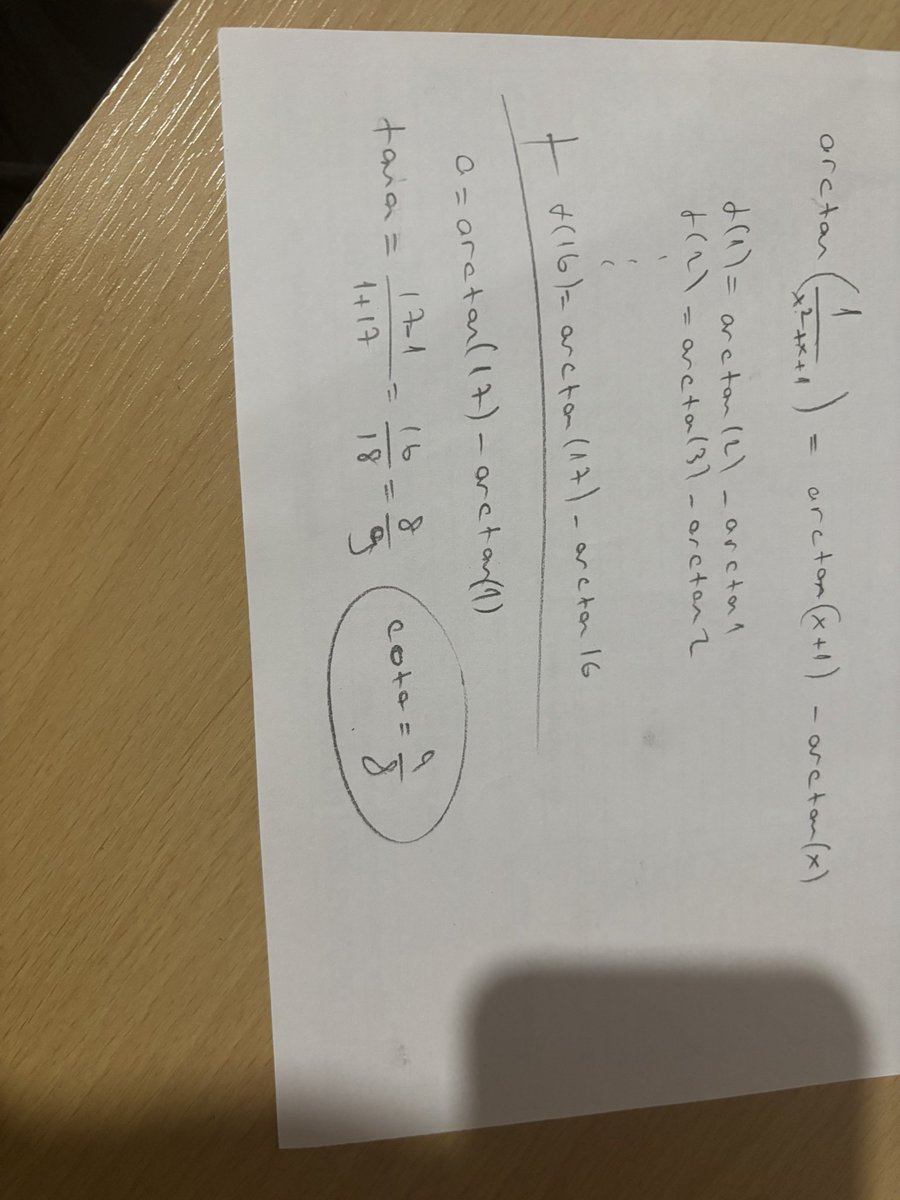 arctan(1/(x²+x+1)) = arctan(x+1) - arctan(x)
f(1) = arctan(2) - arctan1
f(2) = arctan(3) - arctan2
⋮
+ f(16) = arctan(17) - arctan16
a = arctan(17) - arctan(1)
tana = (17-1)/(1+17) = 16/18 = 8/9
cota = 9/8